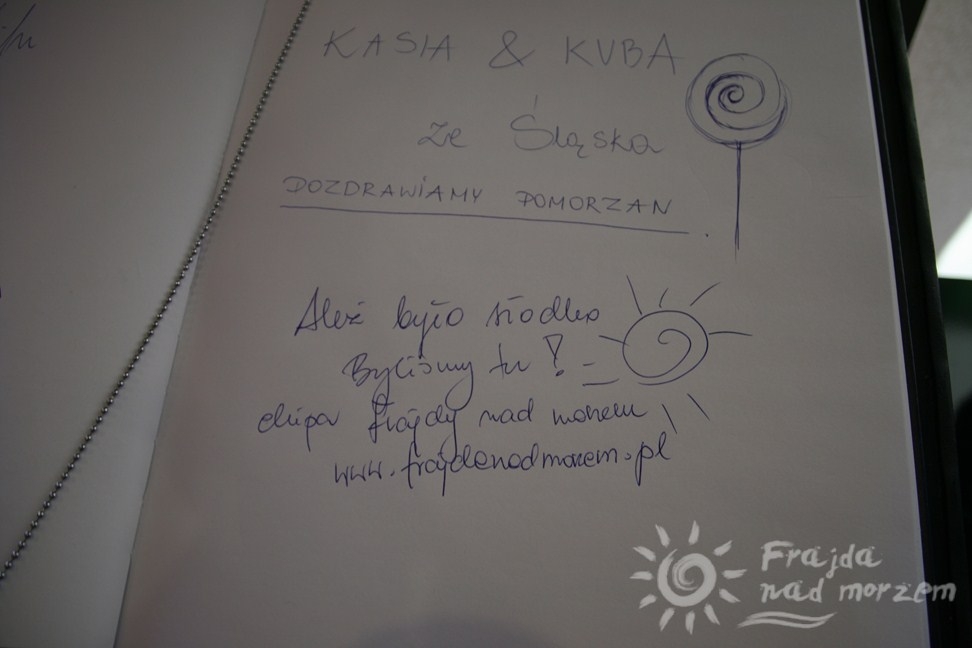 KASIA & KUBA
ze Śląska
POZDRAWIAMY POMORZAN.
Ależ było słodko
Byliśmy tu!
ekipa frajdy nad morzem
www.frajdanadmorzem.pl
Frajda
nad morzem